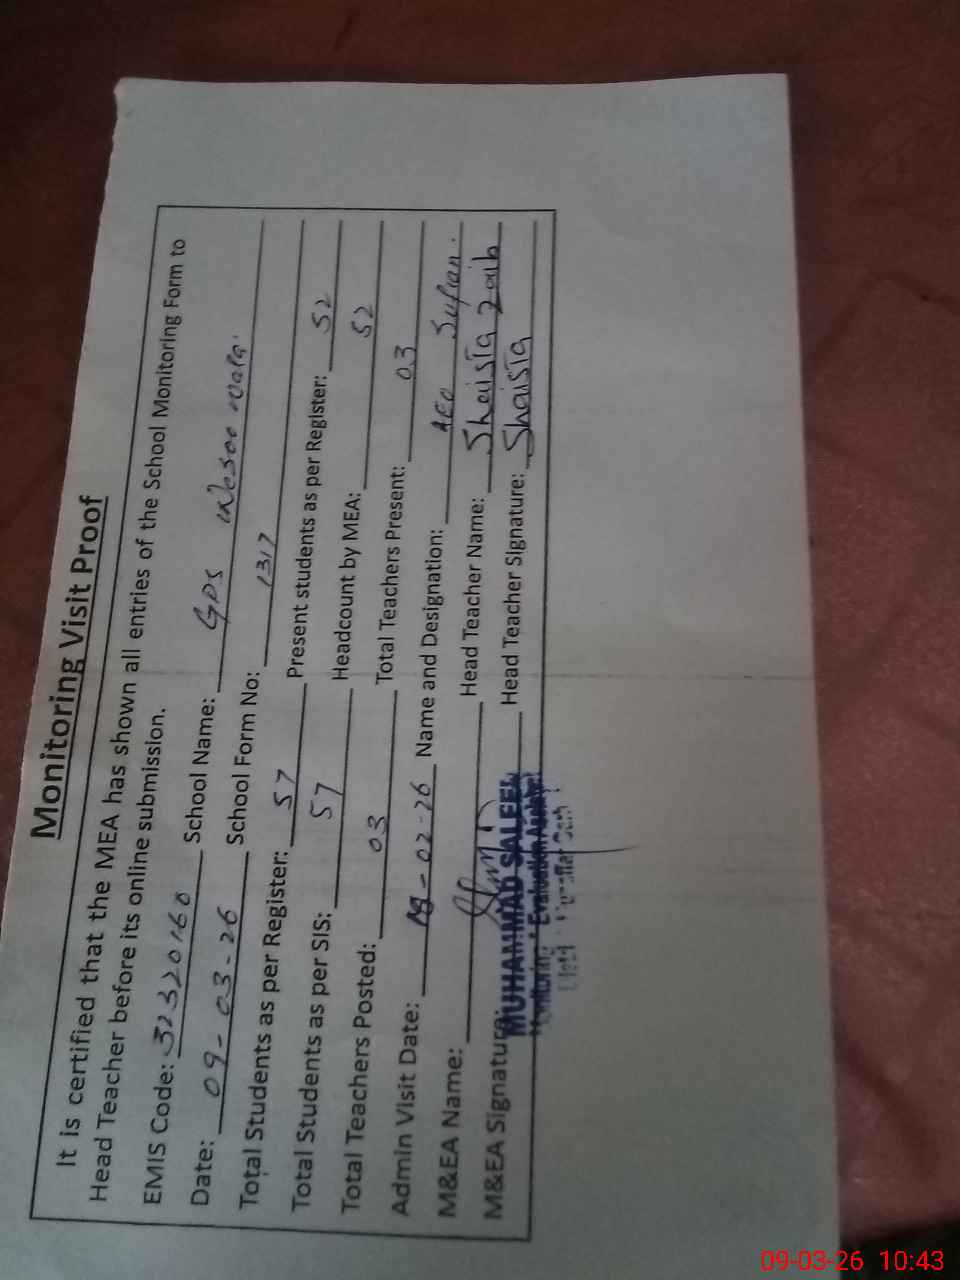 Monitoring Visit Proof
It is certified that the MEA has shown all entries of the School Monitoring Form to
Head Teacher before its online submission.
EMIS Code: 32320160 School Name: GPS wala
Date: 09-03-26 School Form No: 1317
Total Students as per Register: 57 Present students as per Register: 52
Total Students as per SIS: 57 Headcount by MEA: 52
Total Teachers Posted: 03 Total Teachers Present: 03
Admin Visit Date: -02-26 Name and Designation: AEO Sufian.
M&EA Name: Head Teacher Name: Shaista Zaib
M&EA Signature: Head Teacher Signature: Shaista
MUHAMMAD SALEEM
Monitoring & Evaluation Assistant
09-03-26 10:43